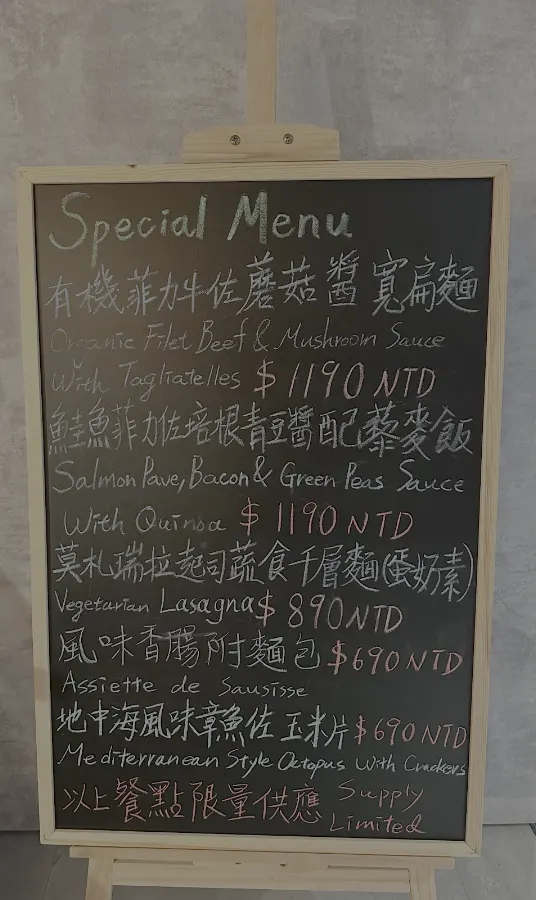 Special Menu
有機菲力牛佐蘑菇醬寬扁麵
Organic Filet Beef & Mushroom Sauce
With Tagliatelles $1190 NTD
鮭魚菲力佐培根青豆醬配藜麥飯
Salmon Pave, Bacon & Green Peas Sauce
With Quinoa $1190 NTD
莫札瑞拉起司蔬食千層麵(蛋奶素)
Vegetarian Lasagna $890 NTD
風味香腸附麵包 $690 NTD
Assiette de Sausisse
地中海風味章魚佐玉米片 $690 NTD
Mediterranean Style Octopus With Crackers
以上餐點限量供應 Supply
Limited